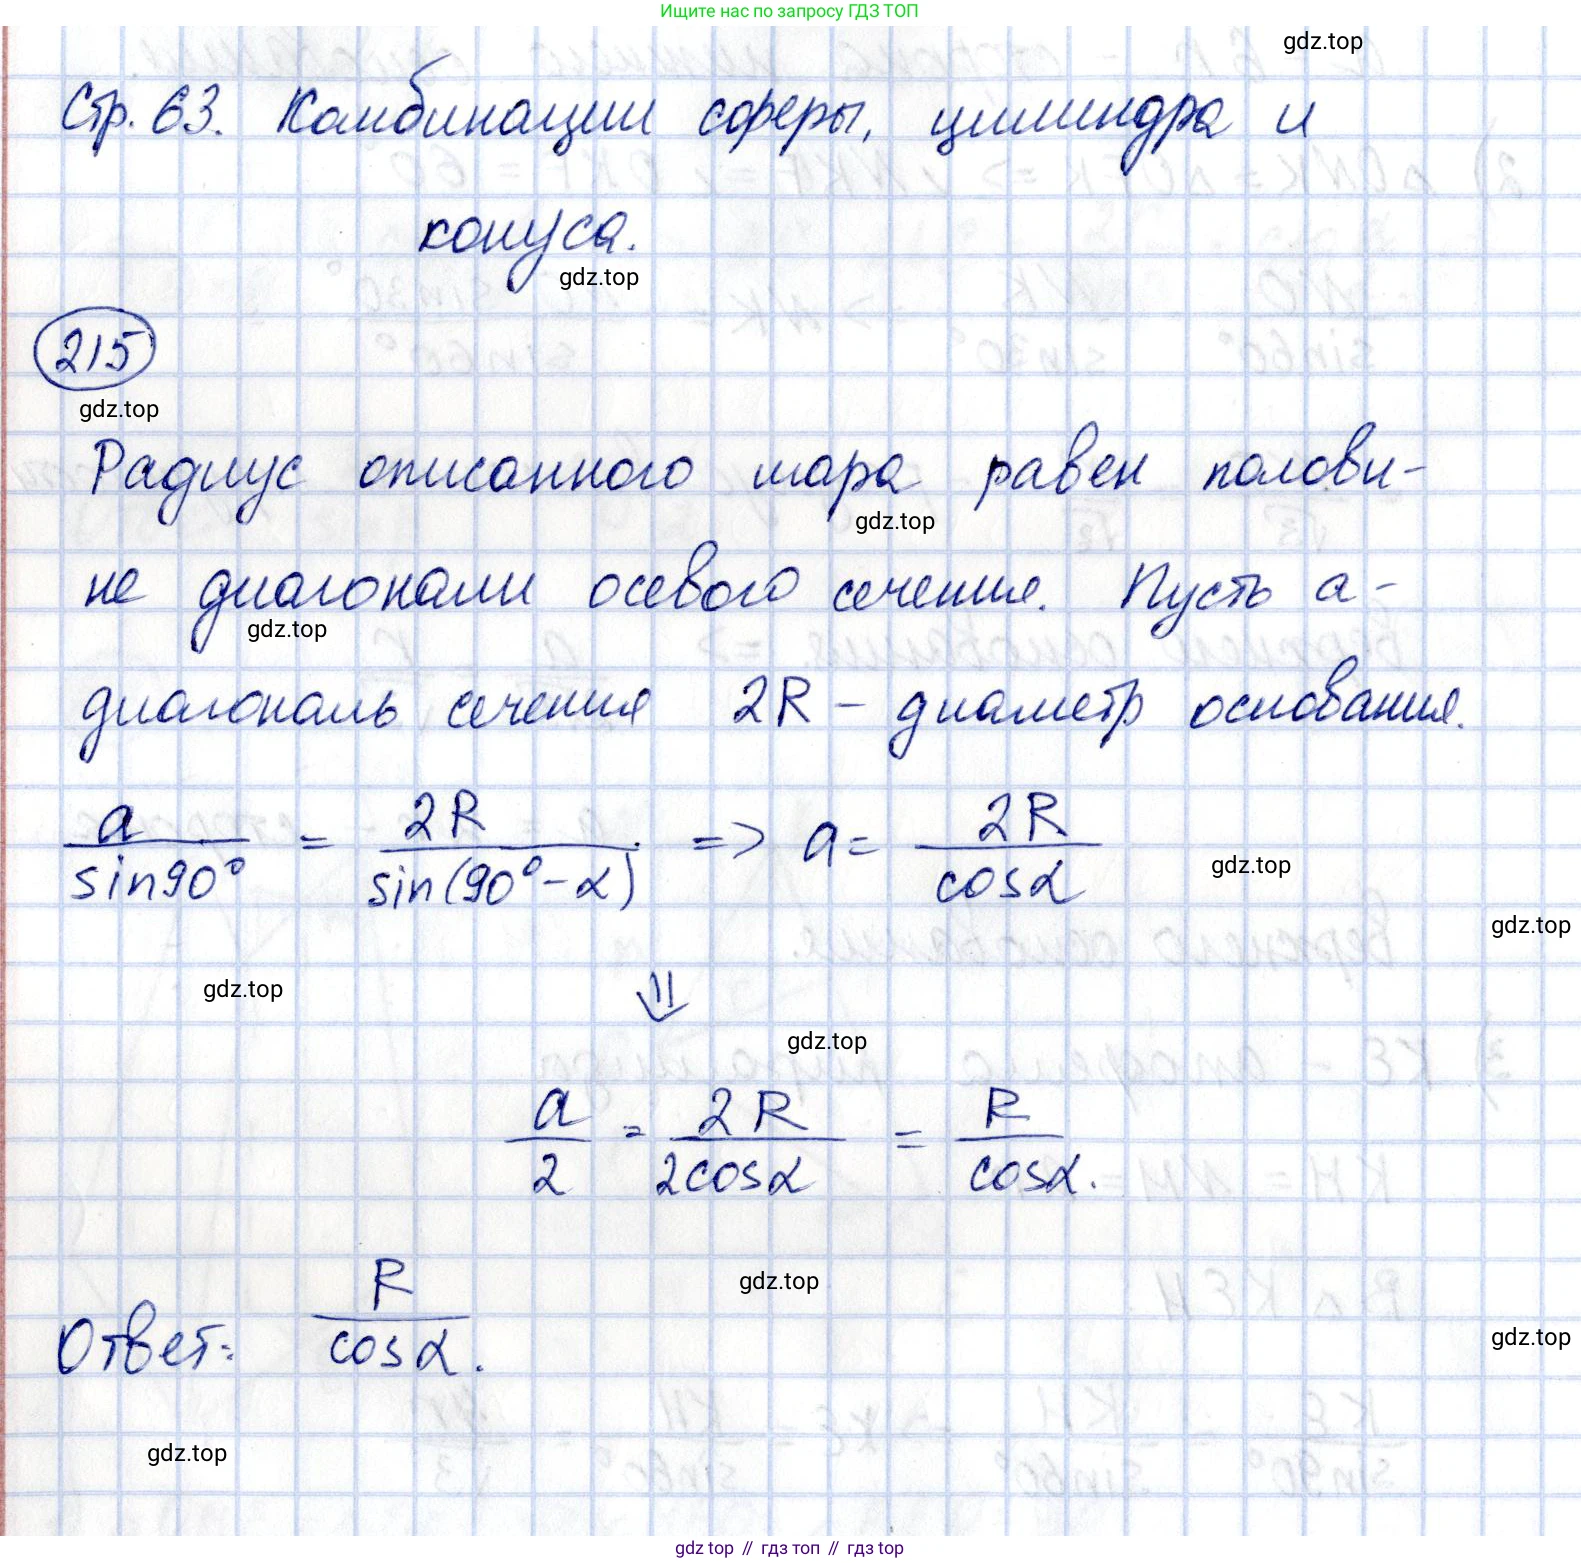 Ищите нас по запросу ГДЗ ТОП
gdz.top
Стр. 63. Комбинации сферы, цилиндра и
конуса.
gdz.top
215
gdz.top
Радиус описанного шара равен полови-
gdz.top
не диагонали осевого сечения. Пусть a-
gdz.top
диагональ сечения 2R - диаметр основания.
a/sin90° = 2R/sin(90°-α) => a= 2R/cosα
gdz.top
gdz.top
gdz.top
⇓
gdz.top
a/2 = 2R/2cosα = R/cosα.
gdz.top
Ответ: R/cosα.
gdz.top
gdz.top
gdz.top // гдз топ // гдз top